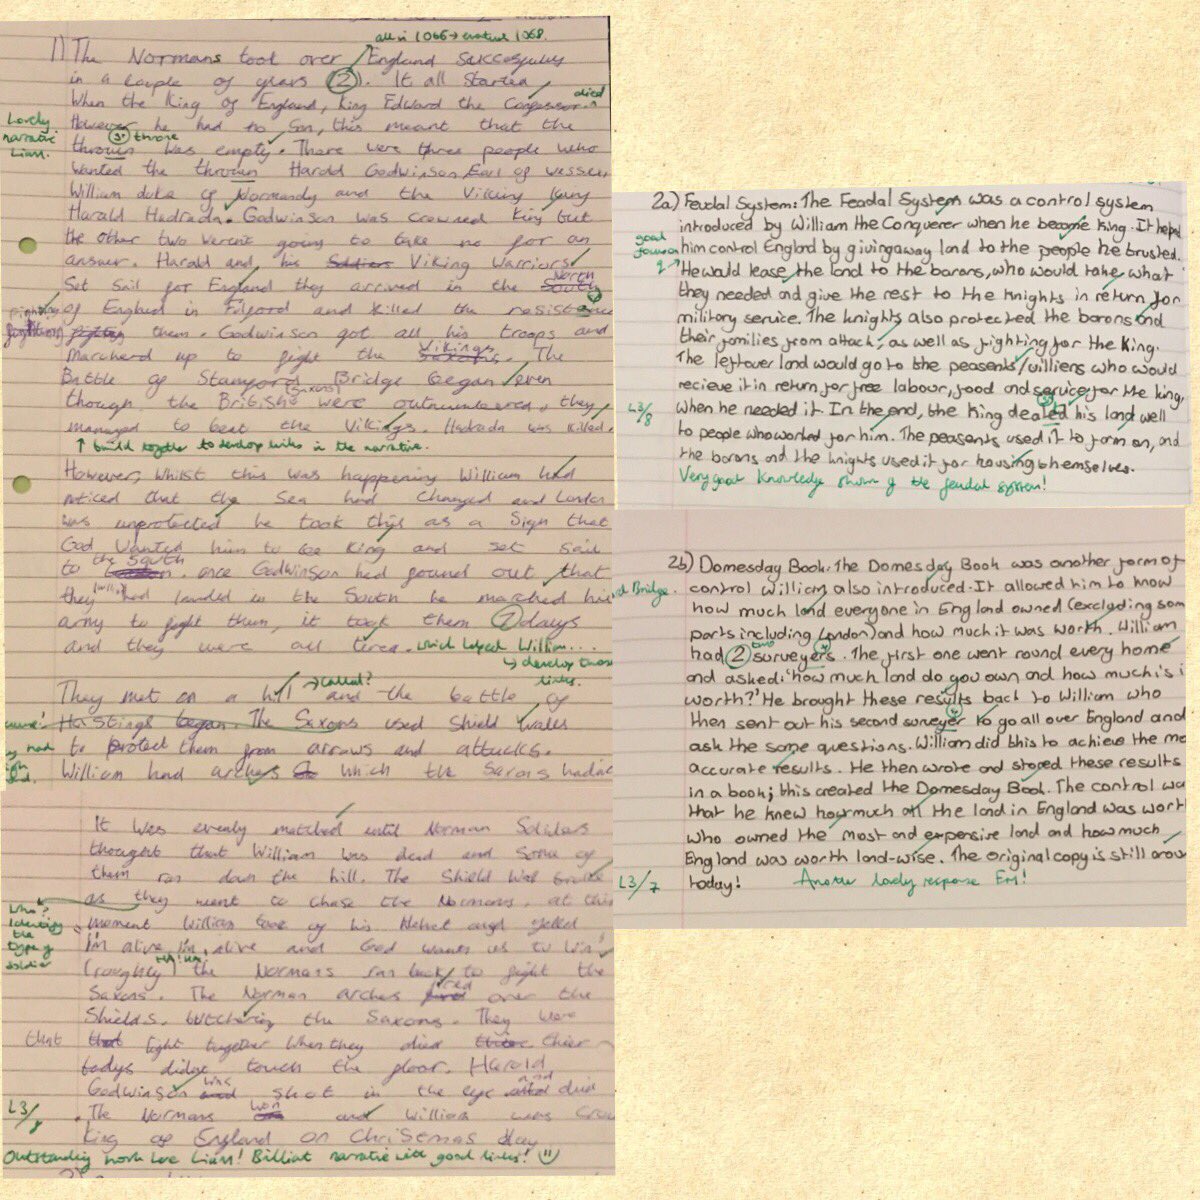 all in 1066 → control 1068.
1) The Normans took over England successfully
in a couple of years (2). It all started
When the King of England, King Edward the Confessor died
Lovely narrative Liam.
However he had no Son, this meant that the
throwin was empty. There were three people who
sp throne
Wanted the thrown Harold Godwinson Earl of wessex,
William duke of Normandy and the Viking King
Harald Hadrada. Godwinson was crowned King but
the other two Werent going to take no for an
answer. Harald and his Viking Warriors
Set Sail for England they arrived in the North
of England in and killed the resistance
fighting them. Godwinson got all his troops and
marcherd up to fight the Vikings. The
Battle of Stamford Bridge began even
though the British (Saxons) were outnumbered, they
managed to beat the Vikings Hadrada was killed.
↑ build together to develop links in the narrative.
However, whilst this was happening William had
noticed that the Sea had Changed and London
was unprotected he took this as a Sign that
God Wanted him to be King and set sail
to the South. once Godwinson had found out that
they had landed in the South he marched his
army to fight them, it took them 7 days
and they were all tired. which helped William...
↳ develop those links.
They met on a hill → called? and the battle of
Hasstings began. The Saxons used Shield walls
to protect them from arrows and attacks.
William had archers which the Saxons hadnt
It was evenly matched until Norman Soldiers
thought that William was dead and Some of
them ran down the hill. The Shield Wall broke
as they went to chase the Normans. at this
Who? Identify the type of soldier
moment William took of his Helmet and yelled
I'm alive, I'm alive and God wants us to Win!
(roughly) HA! HA! the Normans ran back to fight the
Saxons. The Norman arches fired over the
Shields. butchering the Saxons. They were
that tight together when they died thier
bodys didnt touch the floor. Harold
Godwinson was shot in the eye and died
L3/8
. The Normans won and William was
King of England on Christmas day
Outstanding work Liam! Brilliant narrative with good links!
2a) Feudal System: The Feadal System was a control system
introduced by William the Conquerer when he become King. It helped
good focus on Q →
him control England by giving away land to the people he trusted.
He would lease the land to the barons, who would take what
they needed and give the rest to the Knights in return for
military service. The knights also protected the barons and
their families from attack, as well as fighting for the King.
The leftover land would go to the peasents/villiens who would
recieve it in return for free labour, food and service for the king,
L3/8
when he needed it. In the end, the King dealed his land well
to people who worked for him. The peasents used it to farm on, and
the barons and the knights used it for housing themselves.
Very good knowledge shown of the feudal system!
2b) Domesday Book: The Domesday Book was another form of
d Bridge.
control William also introduced. It allowed him to know
how much land everyone in England owned (excluding som
parts including London) and how much it was worth. William
had 2 two surveyers. The first one went round every home
and asked: 'how much land do you own and how much is i
worth?' He brought these results back to William who
then sent out his second surveyer to go all over England and
ask the same questions. William did this to achieve the mo
accurate results. He then wrote and stored these results
in a book; this created the Domesday Book. The control wa
that he knew how much all the land in England was wort
who owned the most and expensive land and how much
England was worth land-wise. The original copy is still arou
L3/7
today! Another lovely response Em!